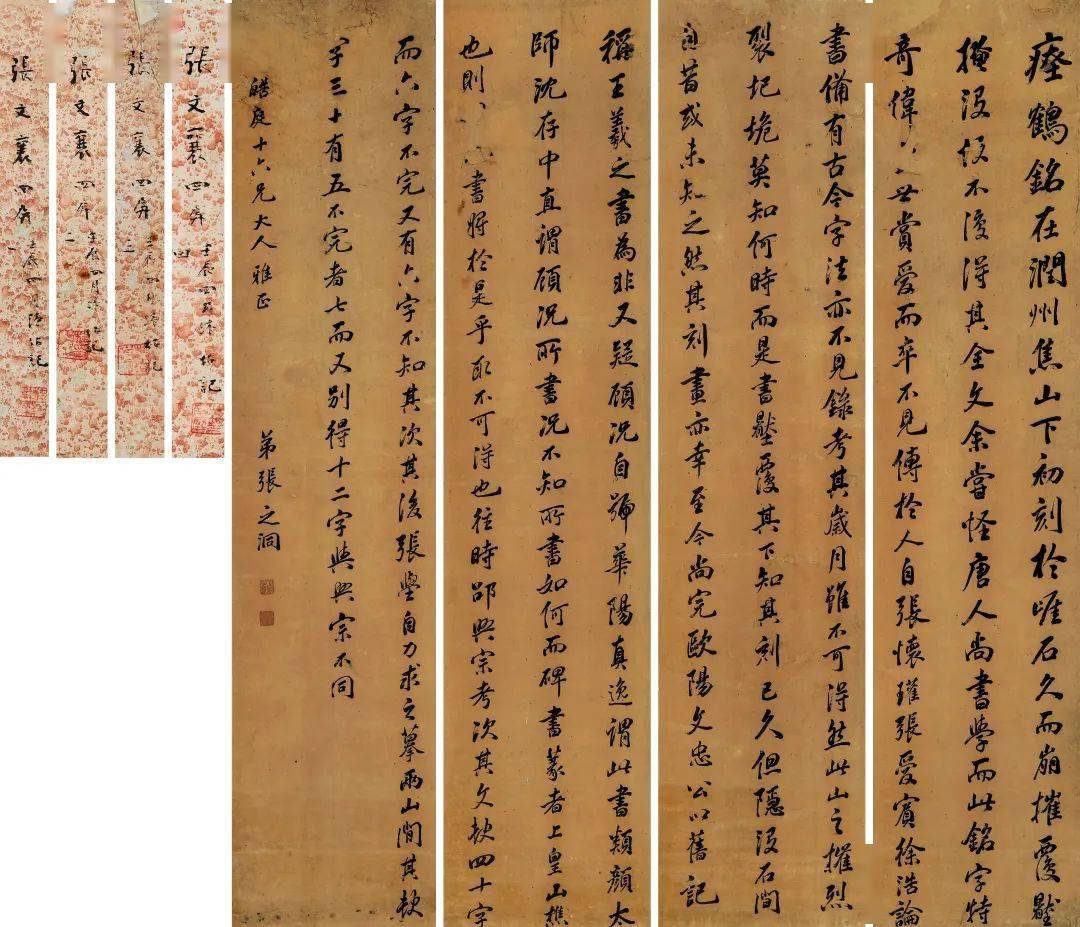 瘞鶴銘在潤州焦山下初刻於崖石久而崩摧覆壓
掩沒故不復得其全文余嘗怪唐人尚書學而此銘字特
奇偉世賞愛而卒不見傳於人自張懷瓘張愛賓徐浩論
書備有古今字法亦不見錄考其歲月雖不可得然此山之摧烈
裂圮詭莫知何時而是書壓覆其下知其刻已久但隱沒石間
自昔或未知之然其刻畫亦幸至今尚完歐陽文忠公以舊記
稱王羲之書為非又疑顧況自號華陽真逸謂此書類顏太
師沈存中直謂顧況所書況不知所書如何而碑書篆者上皇山樵
也則書將於是乎取不可得也往時邵興宗考次其文缺四十字
而六字不完又有六字不知其次其後張壆自力求之摹兩山間其缺
字三十有五不完者七而又別得十二字與興宗不同
十六兄大人雅正
弟張之洞
張文襄四屏 四
張文襄四屏 三
張文襄四屏 二
張文襄四屏 一